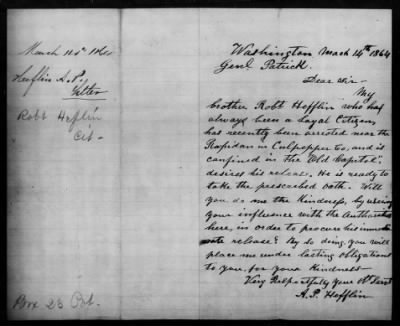 March 14th 1864
Hefflin A.P.
Letter
Robt Heflin
Cit-
Box 23 Pot.
Washington March 14th 1864
Genl. Patrick.
Dear Sir-
My
brother Robt Hefflin who has
always been a Loyal Citizen,
has recently been arrested near the
Rapidan in Culpepper Co, and is
confined in The "Old Capitol",
desires his release. He is ready to
take the prescribed oath. Will
you do me the Kindness, by useing
your influence with the Authorities
here, in order to procure his imme
ate release? By so doing you will
place me under lasting obligations
to you, for your Kindness-
Very Respectfully Your Obt Servt
A. P. Hefflin